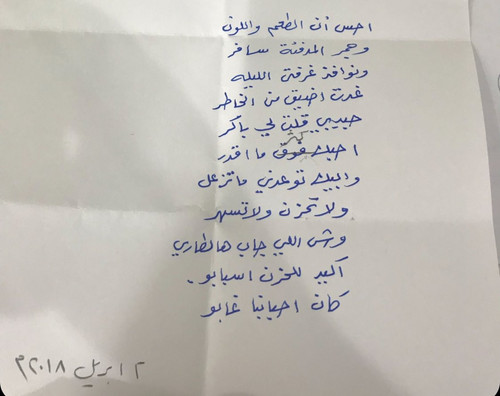 احس أن الطعم واللون
وجمر المدفئة سافر
ونوافذ غرفتي الليله
غدت اضيق من الخاطر
حبيبي قلت لي باكر
احبك فوق كثر ما اقدر
وابيك توعدني ماتزعل
ولا تحزن ولا تسهر
وش اللي جاب هالطاري
اكيد للحزن اسبابو.
كان احيانيا غابو
٢ ابريل ٢٠١٨م